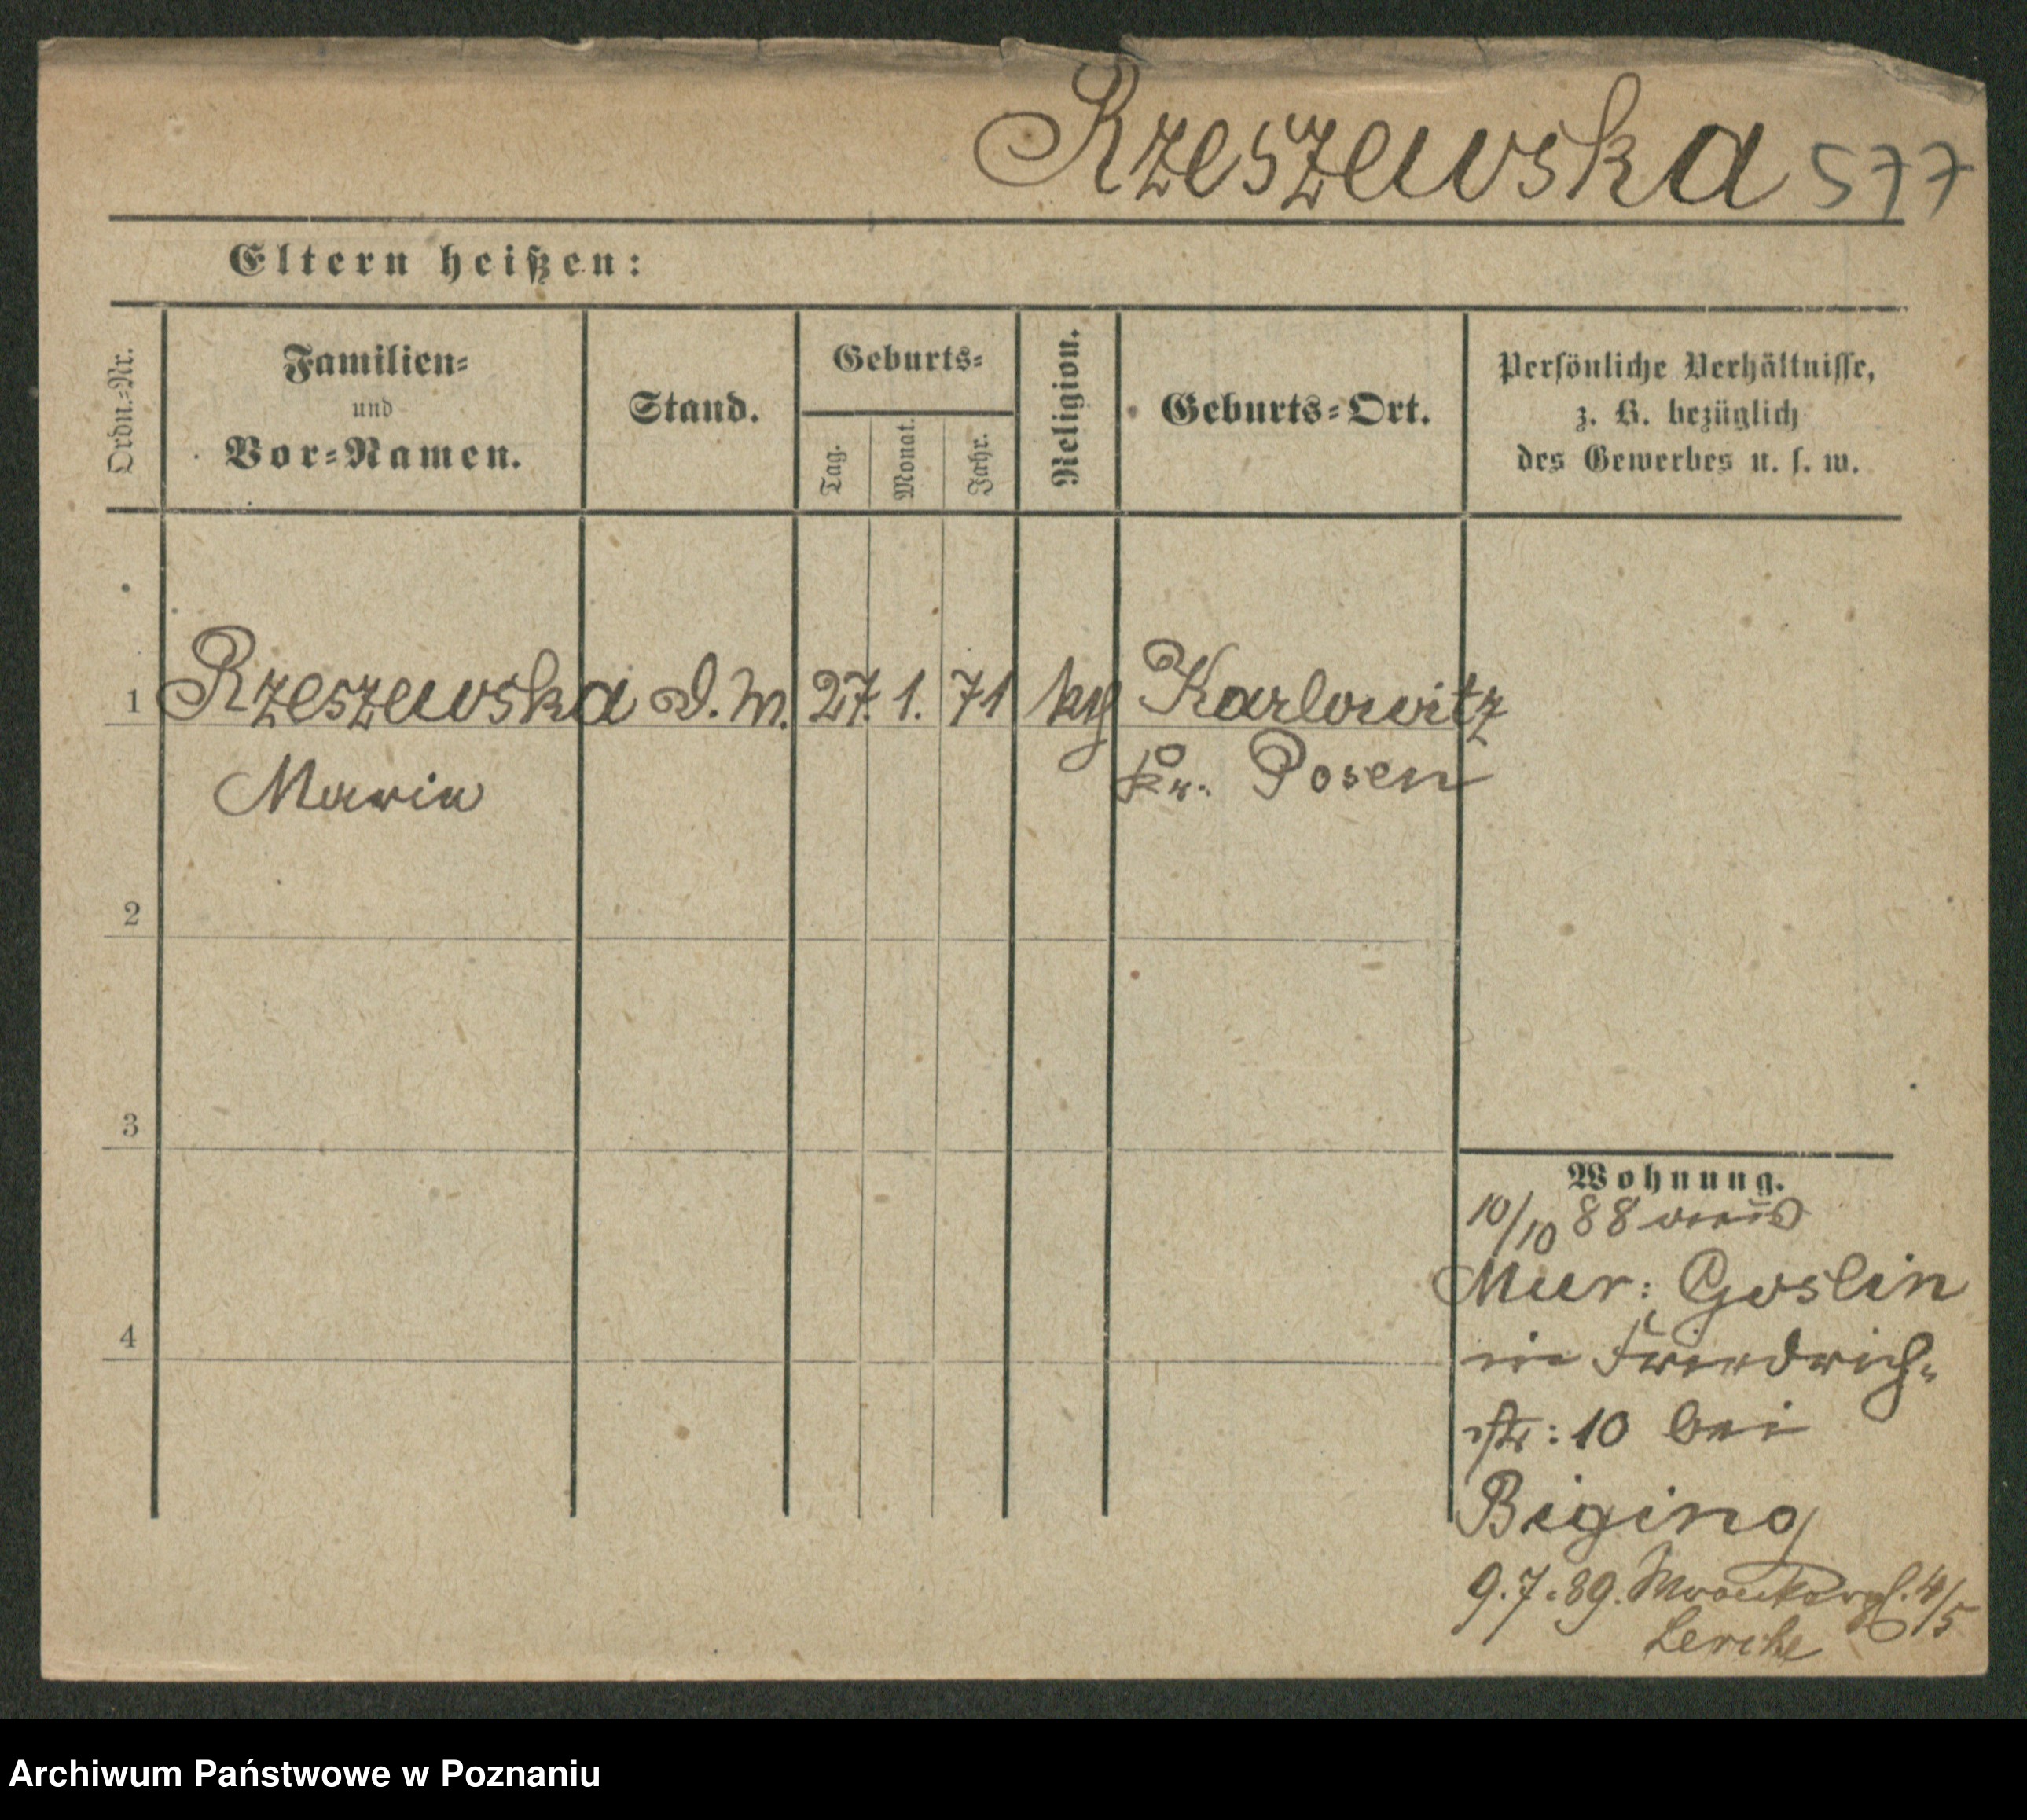 Rzeszewska 577
Eltern heißen:
Ordn.-Nr.
Familien-
und
Vor-Namen.
Stand.
Geburts-
Tag.
Monat.
Jahr.
Religion.
Geburts-Ort.
Persönliche Verhältnisse,
z. B. bezüglich
des Gewerbes u. s. w.
1 Rzeszewska D. M. 27. 1. 71 kg Karlowitz
Marie Kr. Posen
2
3
4
Wohnung.
10/10 88 aus
Mur: Goslin
in Friedrich-
str: 10 bei
Biging
9.7.89. 4/5
Lerche
Archiwum Państwowe w Poznaniu